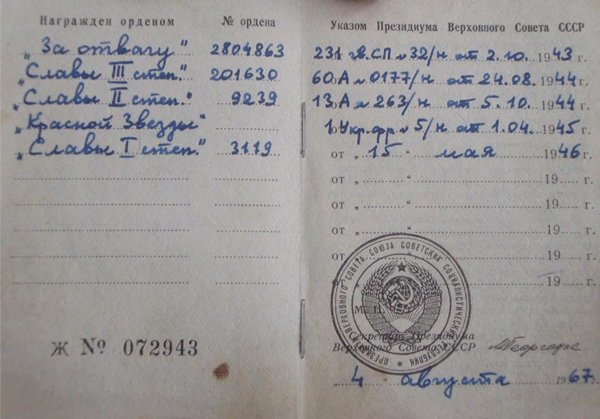 Награжден орденом
№ ордена
„За отвагу" 2804863
„Славы III степ." 201630
„Славы II степ." 9239
„Красной Звезды"
„Славы I степ." 3119
Ж № 072943
Указом Президиума Верховного Совета СССР
231 гв.СП № 32/н от 2.10. 1943 г.
60.А № 0177/н от 24.08. 1944 г.
13.А № 263/н от 5.10. 1944 г.
1 Укр.фр № 5/н от 1.04. 1945 г.
от „ 15 " мая 1946 г.
от „ " 19 г.
от „ " 19 г.
от „ " 19 г.
от „ " 19 г.
19 г.
ПРЕЗИДИУМ ВЕРХОВНОГО СОВЕТА СОЮЗА СОВЕТСКИХ СОЦИАЛИСТИЧЕСКИХ РЕСПУБЛИК
М. П.
Секретарь Президиума
Верховного Совета СССР
„ 4 " августа 1967 г.